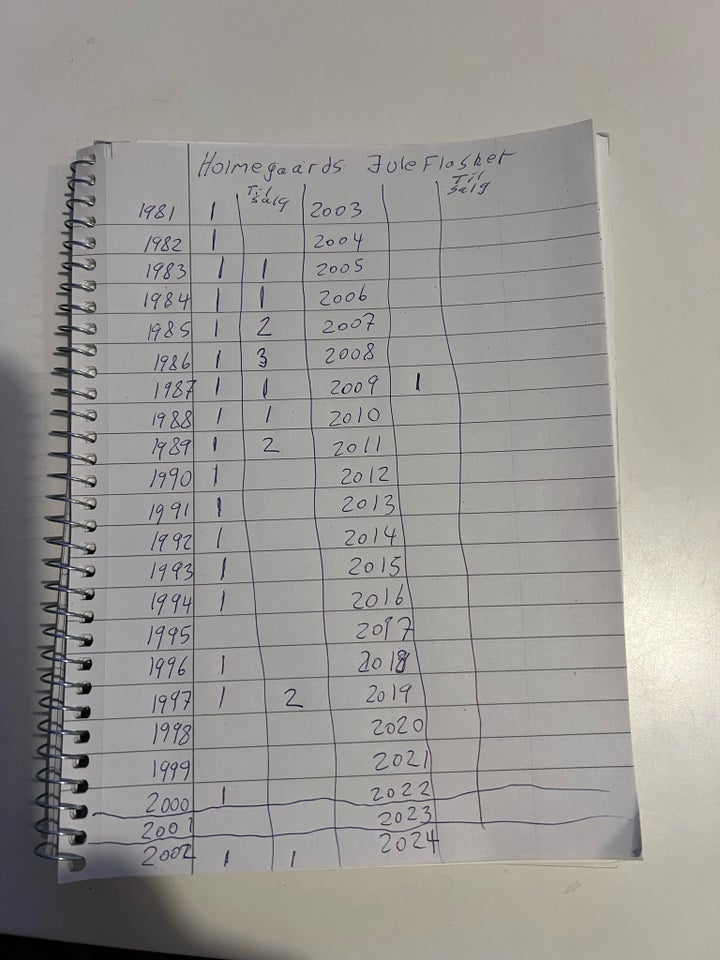 Holmegaards Jule Flasker
Til salg Til salg
1981 1 2003
1982 1 2004
1983 1 1 2005
1984 1 1 2006
1985 1 2 2007
1986 1 3 2008
1987 1 1 2009 1
1988 1 1 2010
1989 1 2 2011
1990 1 2012
1991 1 2013
1992 1 2014
1993 1 2015
1994 1 2016
1995 2017
1996 1 2018
1997 1 2 2019
1998 2020
1999 2021
2000 1 2022
2001 2023
2002 1 1 2024